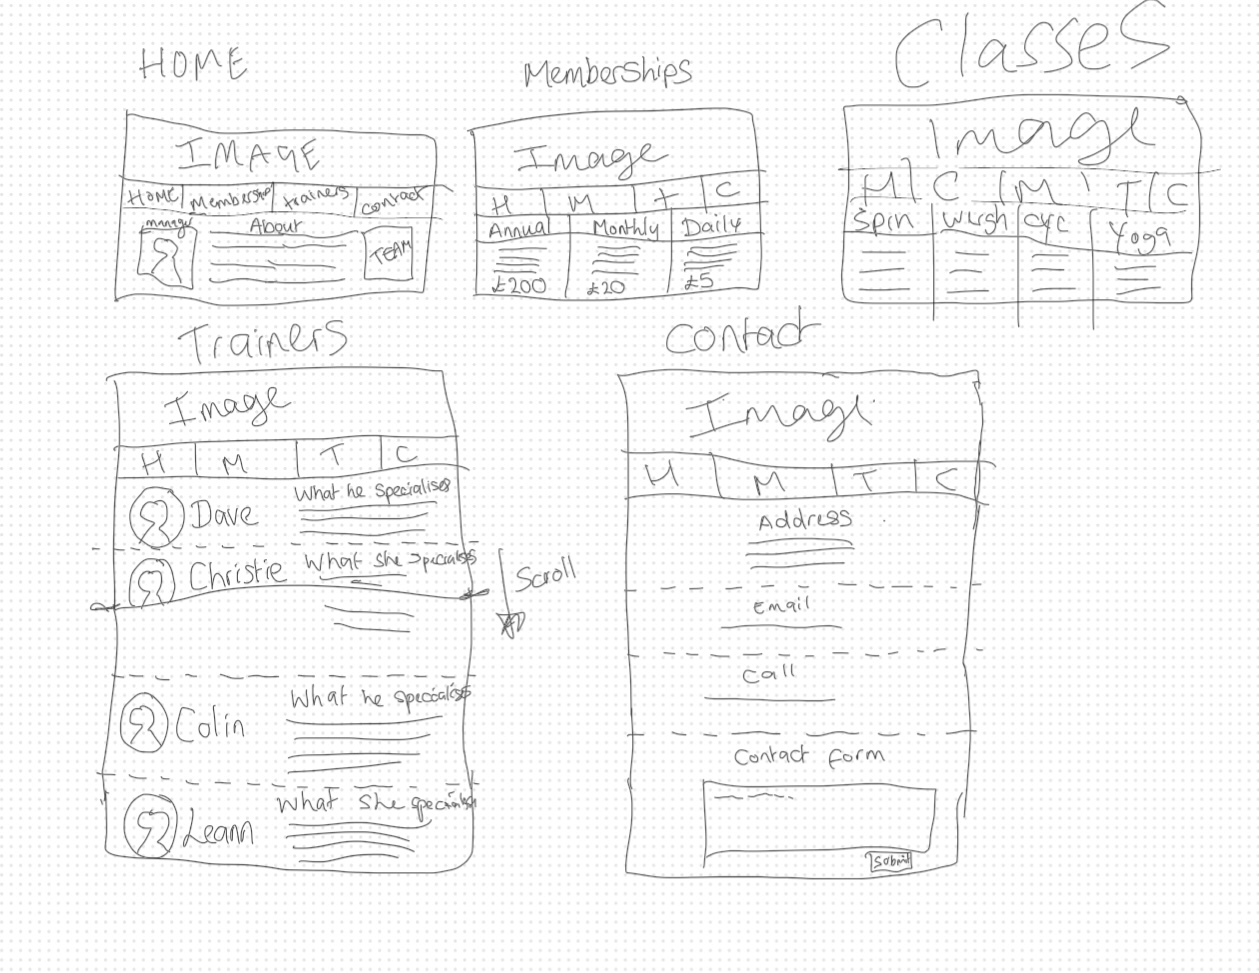 HOME
Memberships
Classes
IMAGE
HOME Membership trainers contact
manager About
TEAM
Image
H M t C
Annual Monthly Daily
£200 £20 £5
Image
H C M T C
Spin cyc Yoga
Trainers
Image
H M T C
Dave What he Specialises
Christie What She Specialises
Scroll
Colin What he specialises
Leann What She specialises
Contact
Image
H M T C
Address
Email
Call
Contact form
Submit